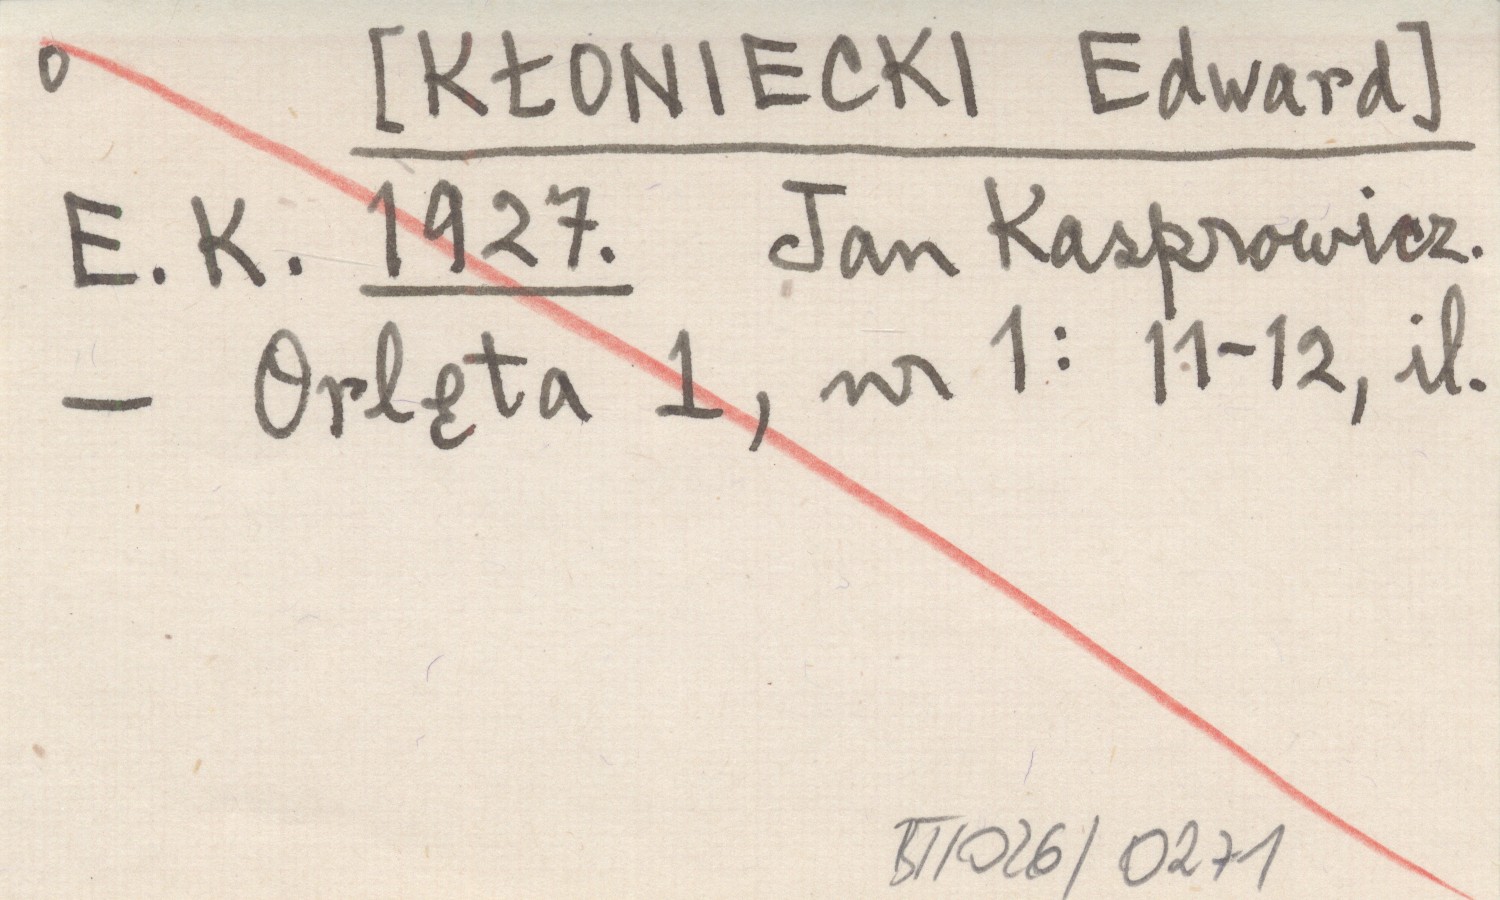 o [KŁONIECKI Edward]
E. K. 1927. Jan Kasprowicz.
— Orlęta 1, nr 1: 11-12, il.
BT/026/ 0271